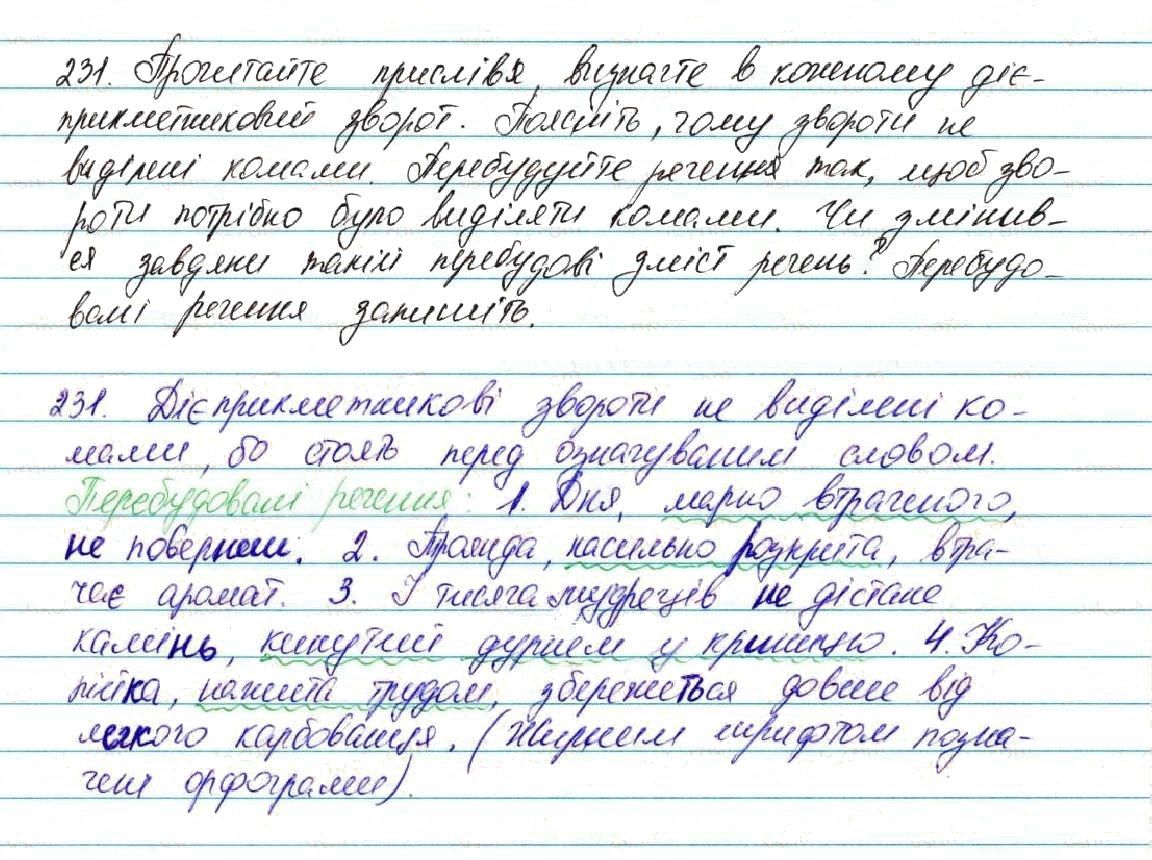 231. Прочитайте прислівя, визначте в кожному діє-
прикметниковий зворот. Поясніть, чому звороти не
виділені комами. Перебудуйте речення так, щоб зво-
роти потрібно було виділяти комами. Чи змінив-
ся завдяки такій перебудові зміст речень? Перебудо-
вані речення запишіть.
231. Дієприкметникові звороти не виділені ко-
мами, бо стоять перед означуваним словом.
Перебудовані речення: 1. Дня, марно втраченого,
не повернеш. 2. Троянда, насильно розкрита, втра-
чає аромат. 3. І тисяча мудреців не дістане
камінь, кинутий дурнем у криницю. 4. Ко-
пійка, нажита трудом, збережеться довше від
легкого карбованця. (Жирним шрифтом позна-
чені орфограми).